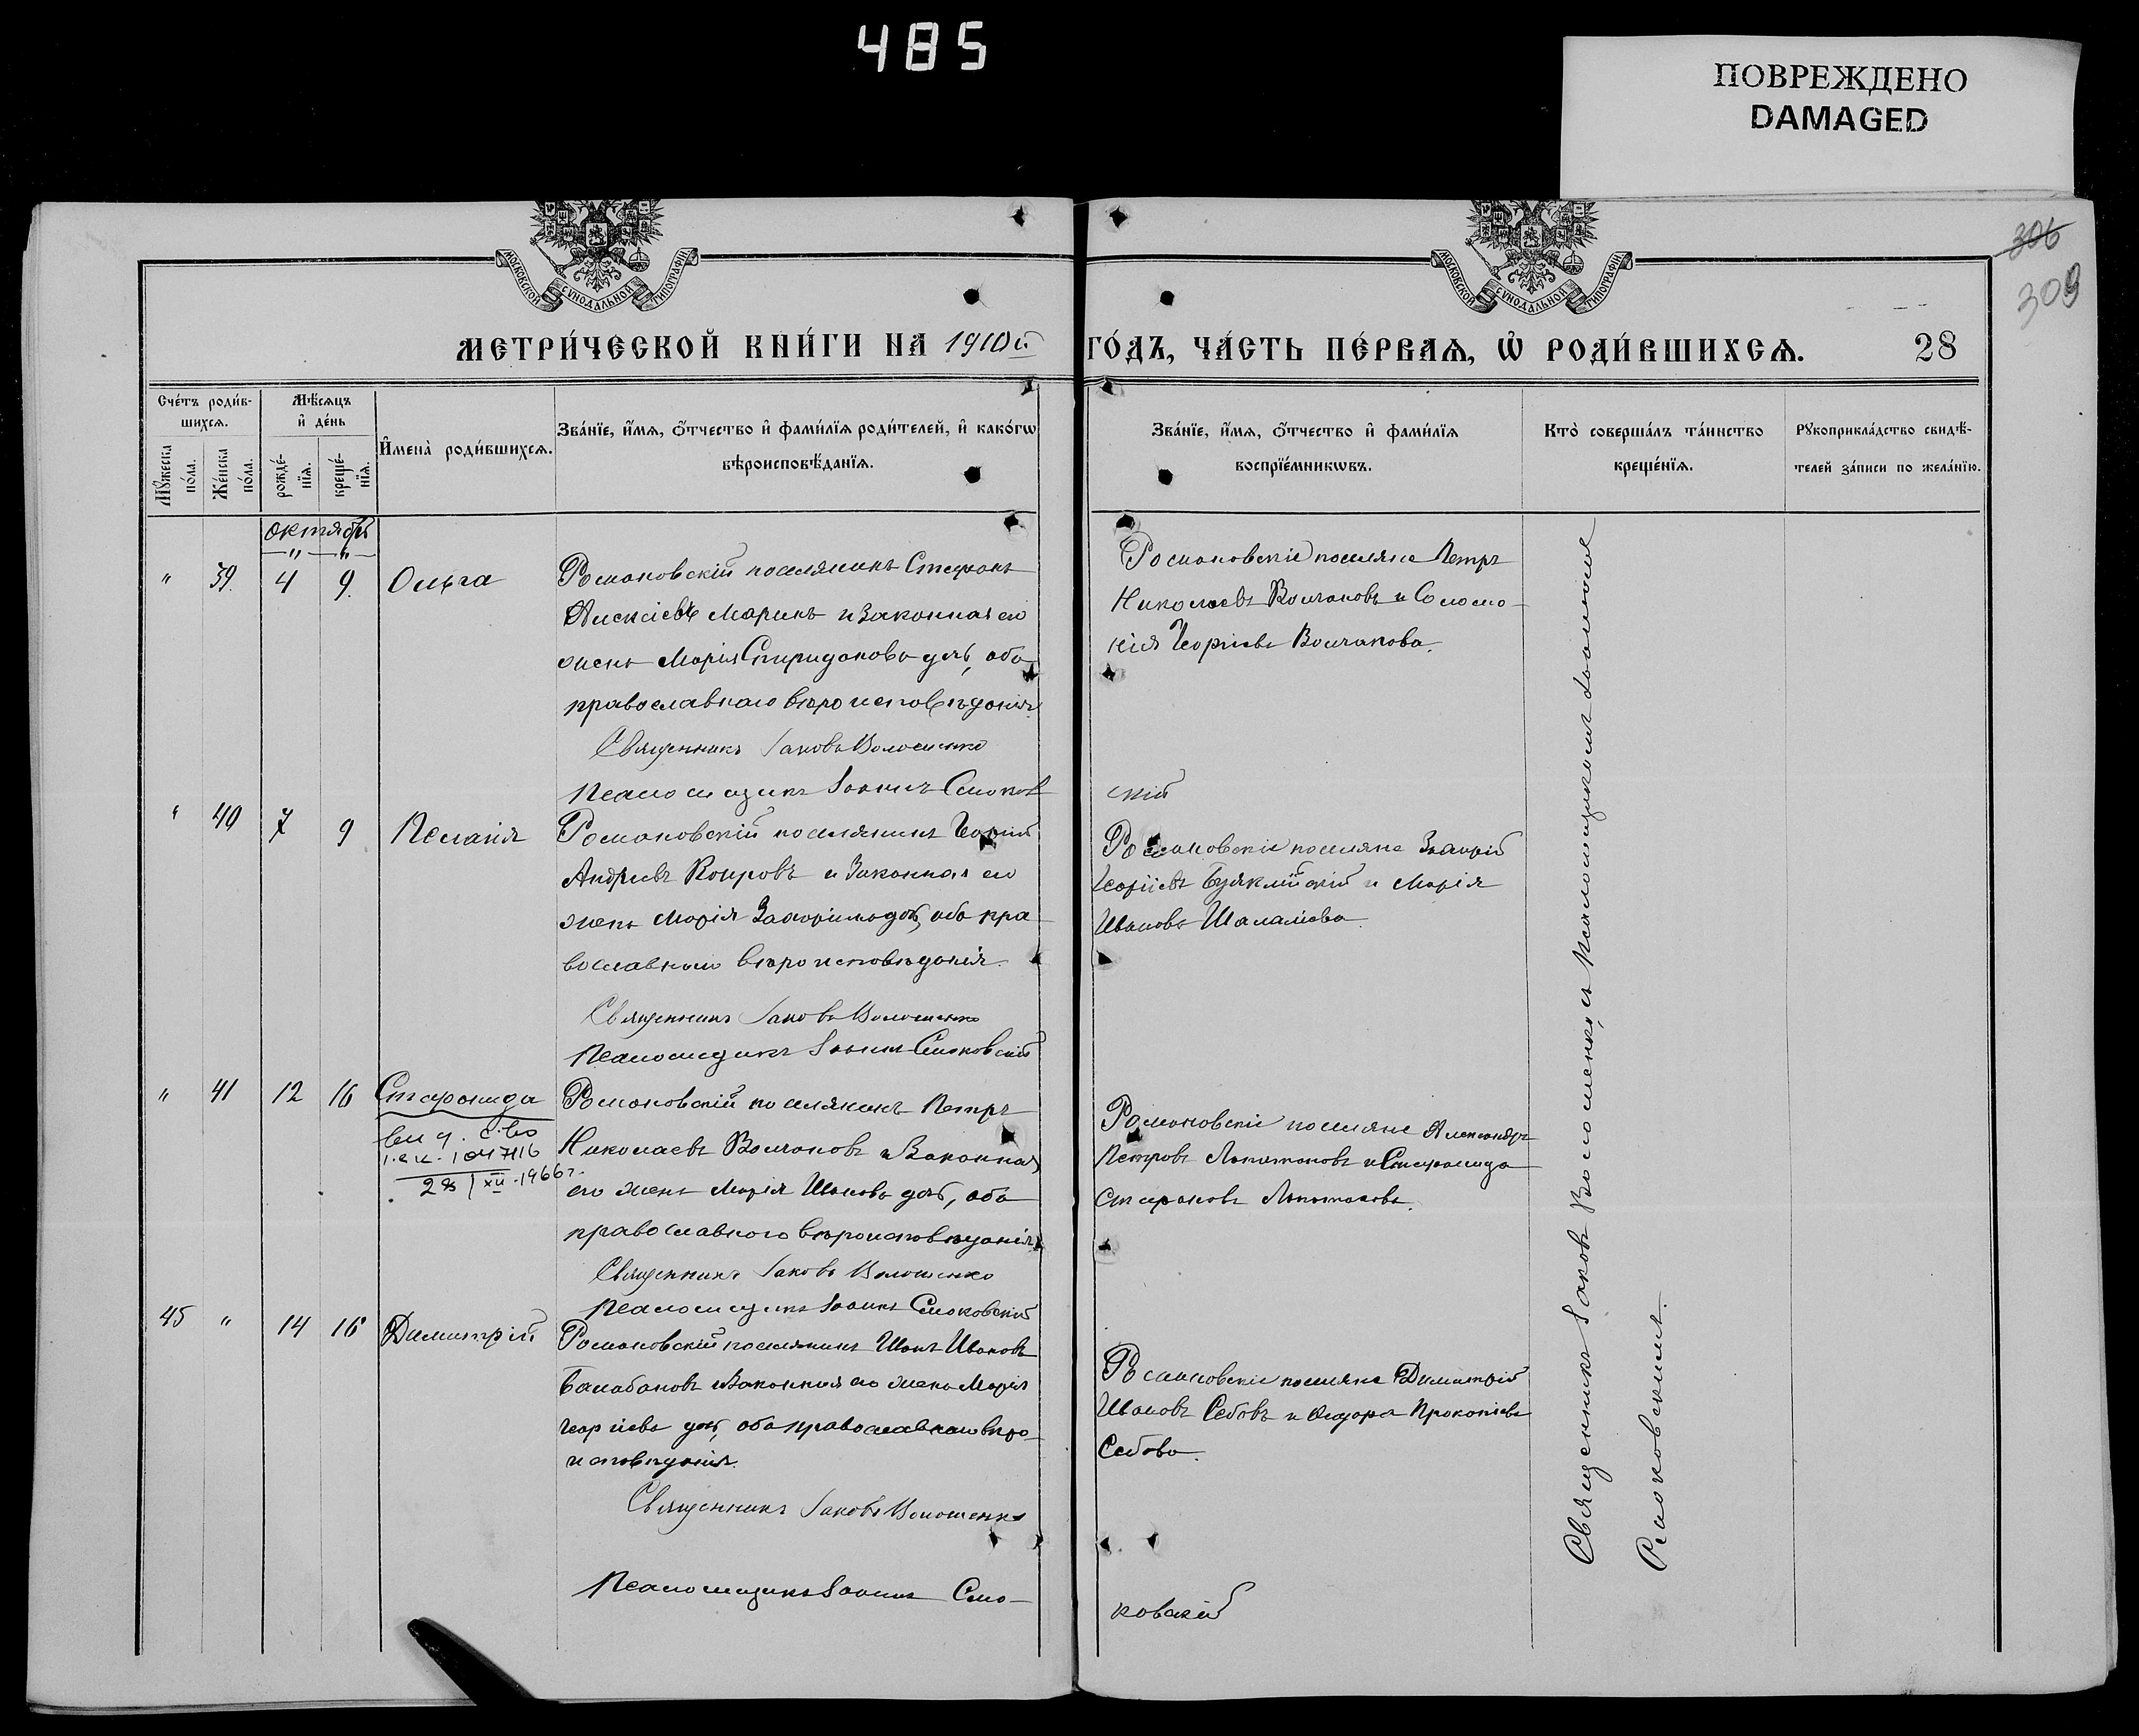 485
ПОВРЕЖДЕНО
DAMAGED
306
309
МОСКОВСКОЙ СѴНОДАЛЬНОЙ ТИПОГРАФІИ
МОСКОВСКОЙ СѴНОДАЛЬНОЙ ТИПОГРАФІИ
МЕТРИ́ЧЕСКОЙ КНИ́ГИ НА 1910й ГО́ДЪ, ЧА́СТЬ ПЕ́РВАѦ, Ѡ҆ РОДИ́ВШИХСѦ. 28
Сче́тъ роди́в-
шихсѧ.
Мꙋ́жеска по́ла.
Же́нска по́ла.
Мѣ́сѧцъ
и҆ де́нь
рожде́-
нїѧ.
креще́-
нїѧ.
И҆мена̀ роди́вшихсѧ.
Зва́нїе, и҆́мѧ, ѻ҆́тчество и҆ фами́лїѧ роди́телей, и҆ како́гѡ
вѣроисповѣ́данїѧ.
Зва́нїе, и҆́мѧ, ѻ҆́тчество и҆ фами́лїѧ
воспрїе́мникѡвъ.
Кто̀ соверша́лъ та́инство
креще́нїѧ.
Рꙋкоприкла́дство свидѣ́-
телей за́писи по жела́нїю.
октябрь
" 39. 4 9. Ольга
Романовскій поселянинъ Стефанъ
Алексіевъ Маринъ и законная его
жена Марія Спиридонова дочь, оба
православнаго вѣроисповѣданія.
Священникъ Іаковъ Волошенко
Псаломщикъ Іоаннъ Смоковскій
Романовскіе поселяне Петръ
Николаевъ Волчановъ и Соломо-
нія Георгіева Волчанова.
" 40 7 9 Пелагія
Романовскій поселянинъ Георгій
Андреевъ и законная его
жена Марія дочь, оба пра-
вославнаго вѣроисповѣданія.
Священникъ Іаковъ Волошенко
Псаломщикъ Іоаннъ Смоковскій
Романовскіе поселяне Захарій
Георгіевъ Буяклійскій и Марія
Иванова Шаламова.
" 41 12 16 Стефанида
28/XII-1966 г.
Романовскій поселянинъ Петръ
Николаевъ Волчановъ и законная
его жена Марія Иванова дочь, оба
православнаго вѣроисповѣданія.
Священникъ Іаковъ Волошенко
Псаломщикъ Іоаннъ Смоковскій
Романовскіе поселяне Александръ
Петровъ и Стефанида
Стефанова
45 " 14 16 Димитрій
Романовскій поселянинъ Иванъ Ивановъ
Балабановъ и законная его жена Марія
Георгіева дочь, оба православнаго вѣро-
исповѣданія.
Священникъ Іаковъ Волошенко
Псаломщикъ Іоаннъ Смо-
ковскій
Романовскіе поселяне Димитрій
Ивановъ Себовъ и Ѳедора Прокопіева
Себова.
Священникъ Іаковъ Волошенко, съ псаломщикомъ Іоанномъ
Смоковскимъ.